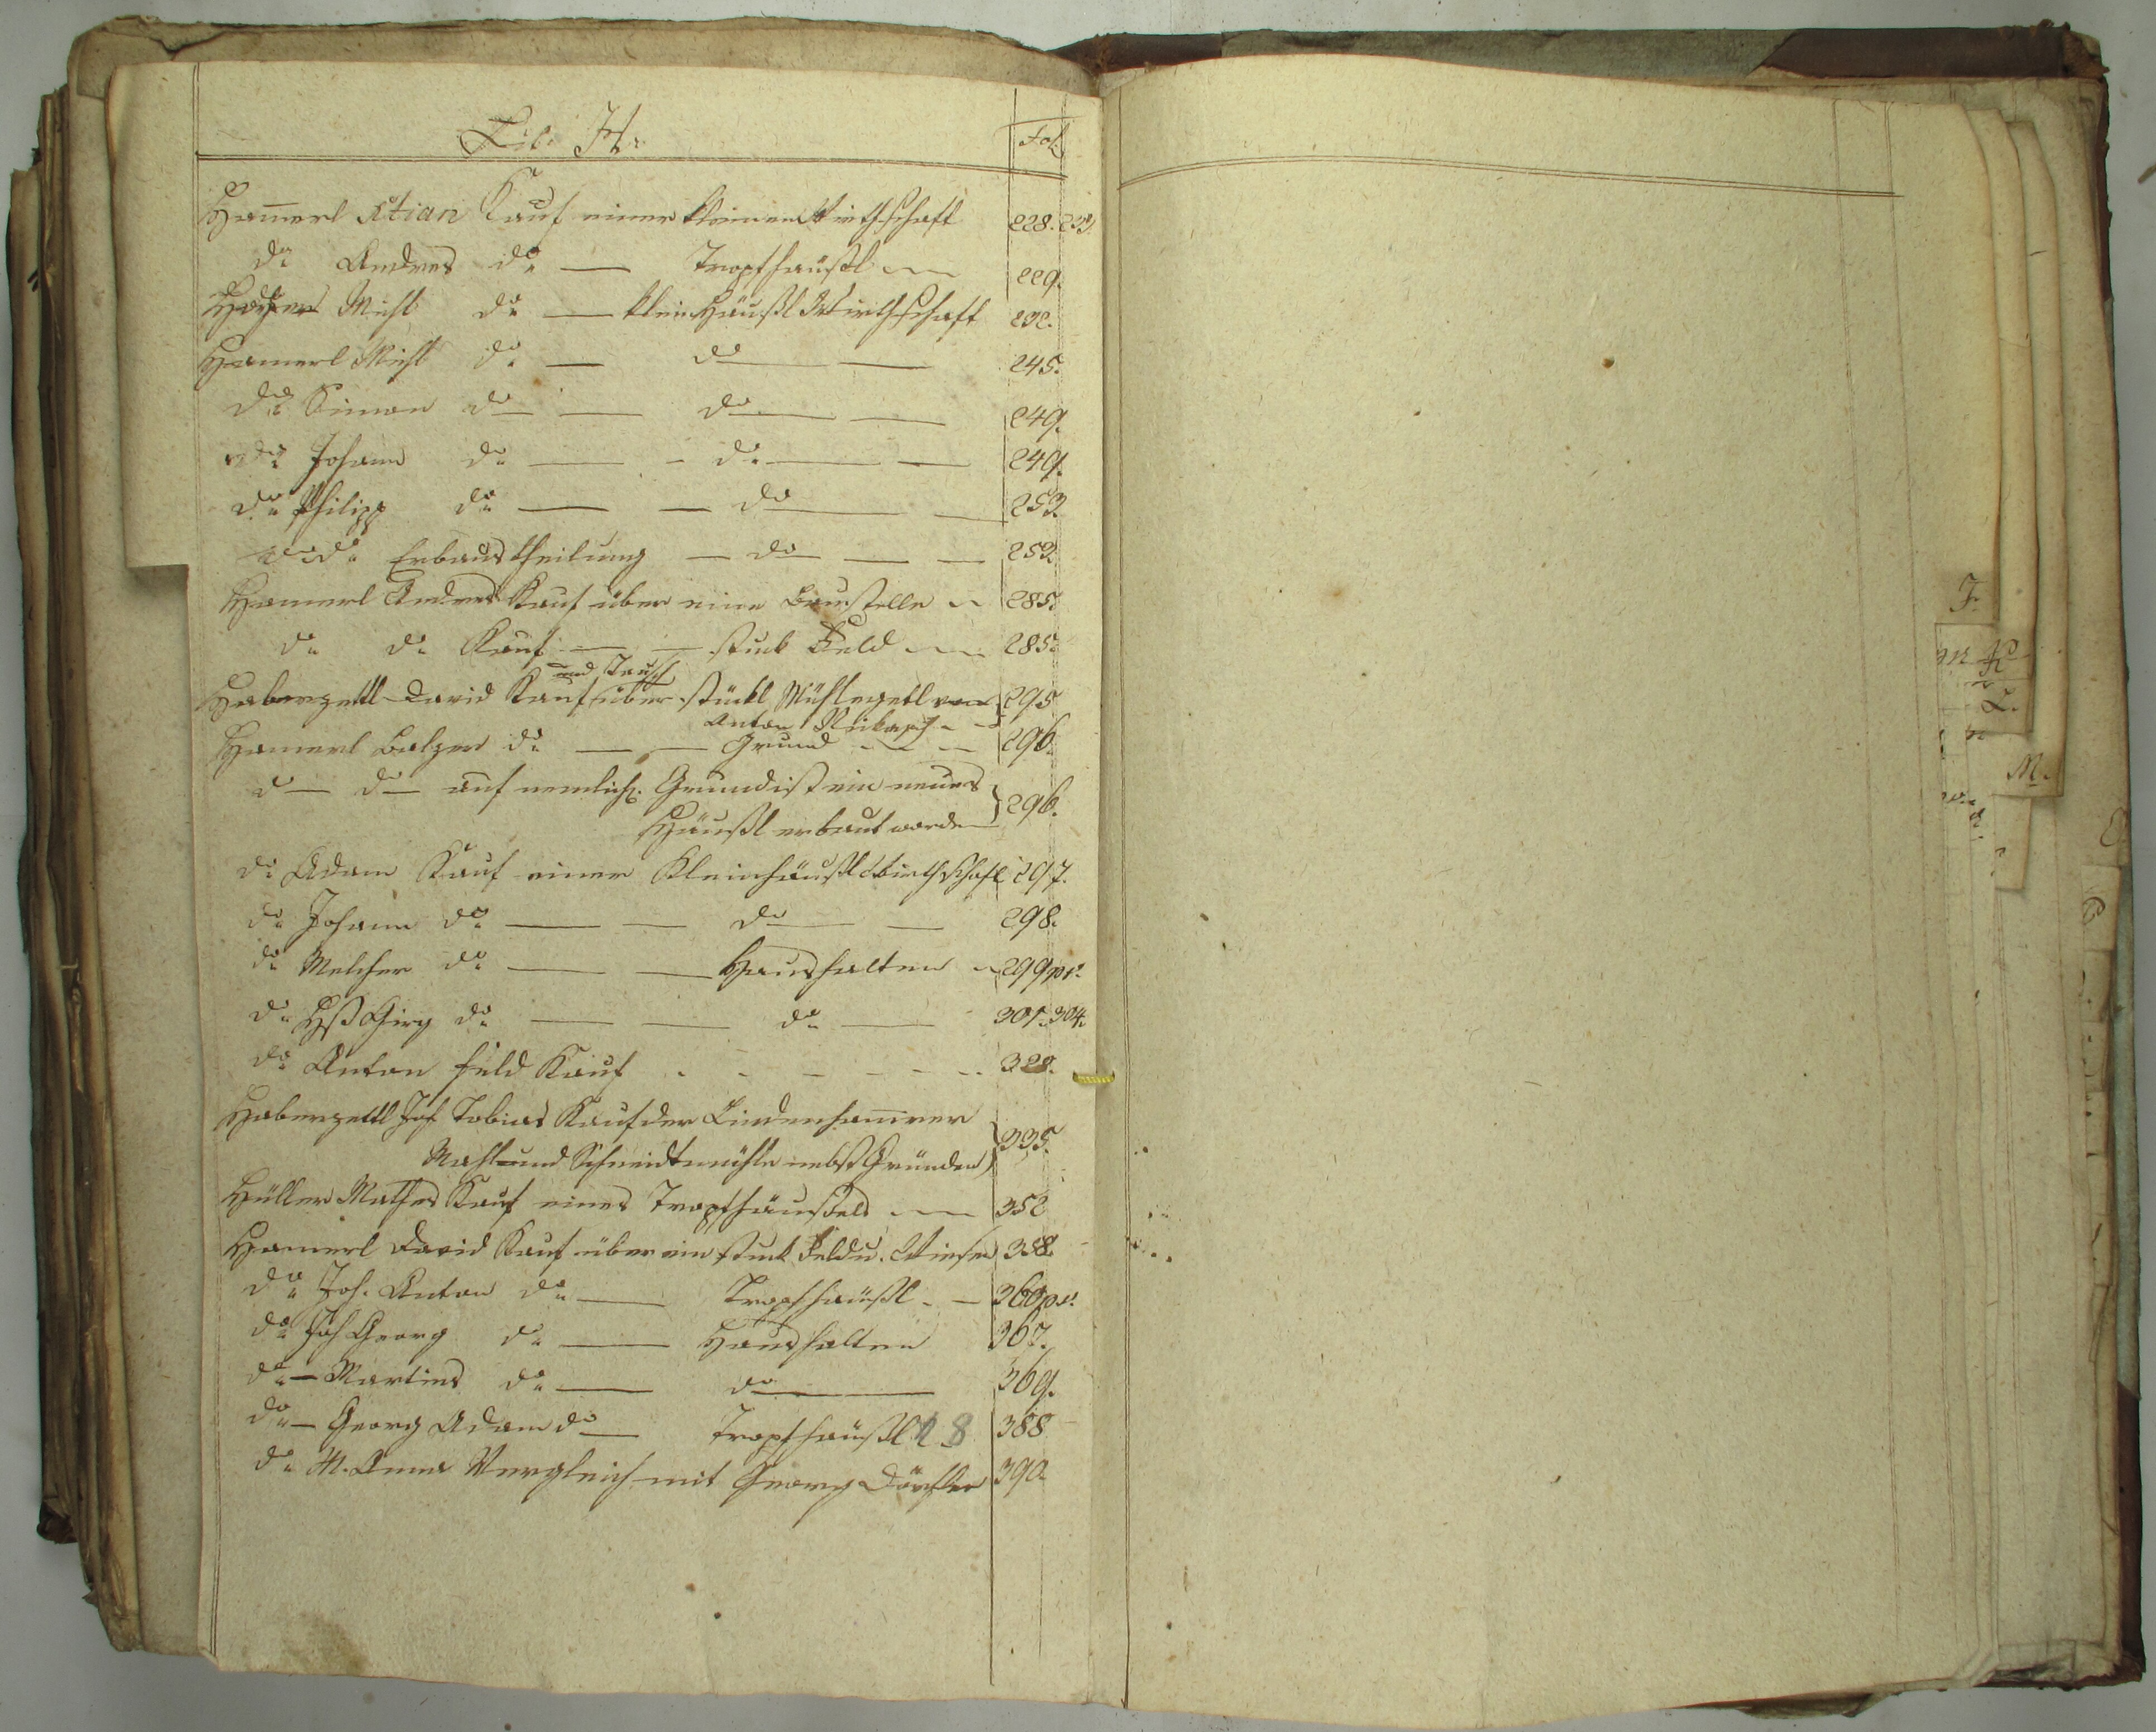 Lit. H.
Fol.
Ham̄erl Xtian Kauf einer kleinen Wirthschaft 228. 233.
do Andres do — Tropfhäußl 229.
Michl do — klein Häußl Wirthschaft 232.
Hamerl Michl do — do — 245.
do Simon do — do — 249.
do Johann do — do — 249.
do Philipp do — do — 253.
do Erbaustheilung — do — 253.
Hamerl Andres Kauf über eine Baustelle 285.
do do Kauf — stuck Feld 285.
und Tausch
Haberzettl David Kauf über stückl Mühlezetl von 295
Anton
Hamerl Balzer do — Grund — 296.
do do auf nemlich. Grund ist ein neues
Häußl erbaut worden } 296.
do Adam Kauf einer Kleinhäußl Wirthschaft 297.
do Johann do — do — 298.
do Melcher do — Haushalten 299 pr.
do Hß Girg do — do — 301. 304.
do Anton Feld Kauf 320.
Haberzettl Joh Tobias Kauf der Lindenham̄rer
Mahl und Schneidtmühle nebst Gründen } 335.
Hüller Mathes Kauf eines Tropfhäußels 352
Hamerl David Kauf über ein stuck Feld u. Wiesen 358.
do Joh. Anton do — Tropfhäußl — 360 pr.
do Joh Georg do — Haushalten 367.
do — Martins do — do — 369.
do — Georg Adam do — Tropfhäußl N 8 388
do M. Anna Vergleich mit Georg Dörfler 390.
F.
H
L.
M.